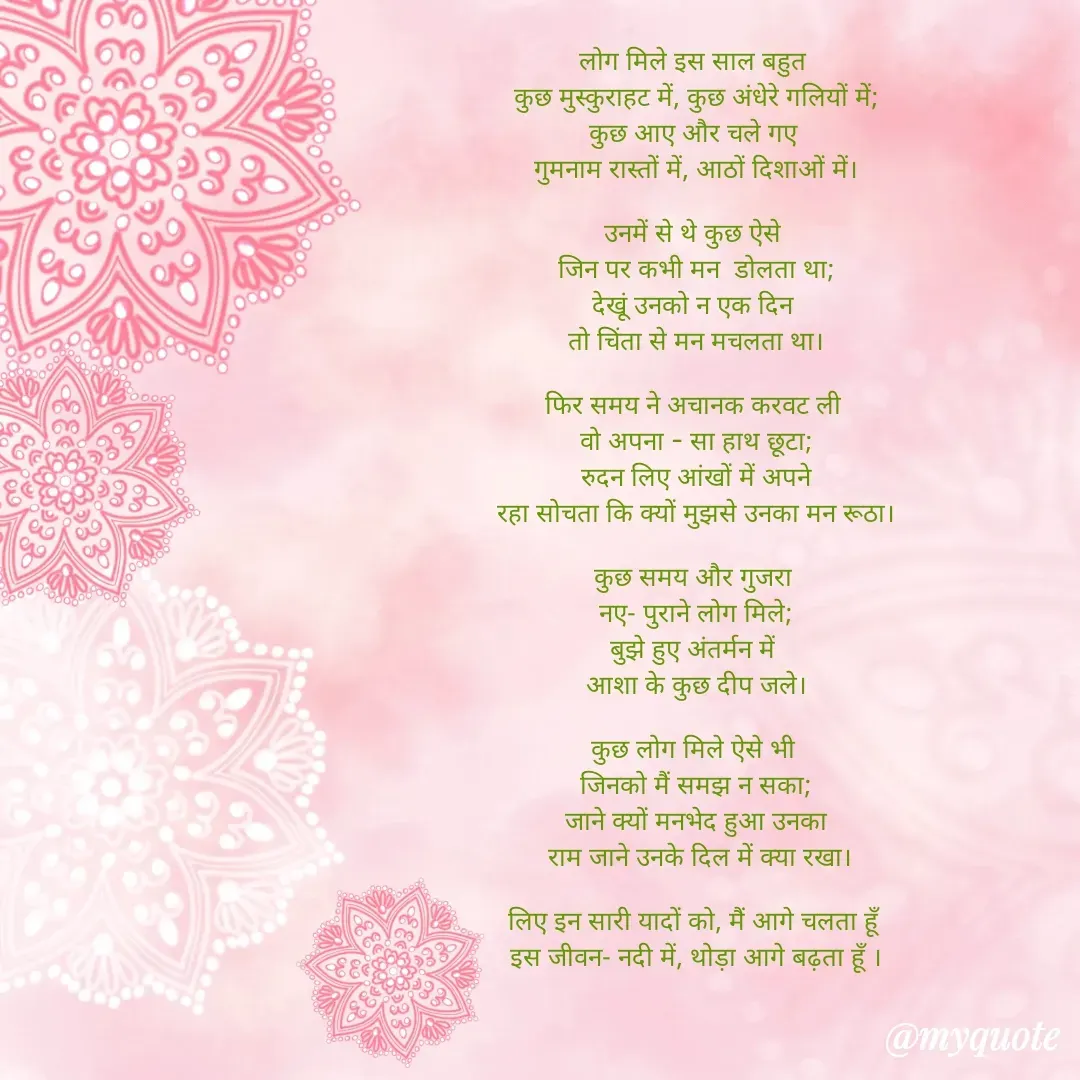 लोग मिले इस साल बहुत
कुछ मुस्कुराहट में, कुछ अंधेरे गलियों में;
कुछ आए और चले गए
गुमनाम रास्तों में, आठों दिशाओं में।
उनमें से थे कुछ ऐसे
जिन पर कभी मन डोलता था;
देखूं उनको न एक दिन
तो चिंता से मन मचलता था।
फिर समय ने अचानक करवट ली
वो अपना - सा हाथ छूटा;
रुदन लिए आंखों में अपने
रहा सोचता कि क्यों मुझसे उनका मन रूठा।
कुछ समय और गुजरा
नए- पुराने लोग मिले;
बुझे हुए अंतर्मन में
आशा के कुछ दीप जले।
कुछ लोग मिले ऐसे भी
जिनको मैं समझ न सका;
जाने क्यों मनभेद हुआ उनका
राम जाने उनके दिल में क्या रखा।
लिए इन सारी यादों को, मैं आगे चलता हूँ
इस जीवन- नदी में, थोड़ा आगे बढ़ता हूँ ।
@myquote